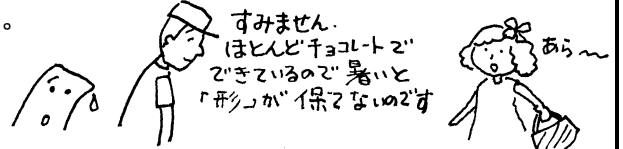 。
すみません.
ほとんどチョコレートで
できているので暑いと
「形」が保てないのです
あら〜